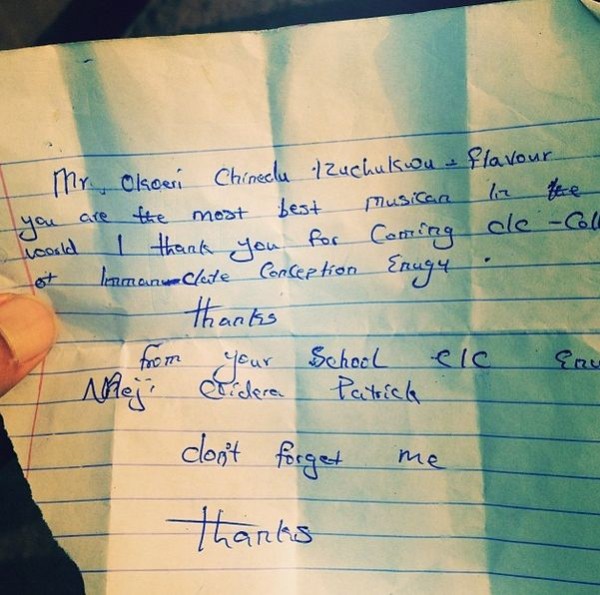 Mr. Okoeri Chinedu Izuchukwu = flavour
you are the most best musican in the
world I thank you for Coming cic - Coll
of Imman-clate Conception Enugu .
thanks
from your School cic Enu
Chidera Patrick
don't forget me
thanks